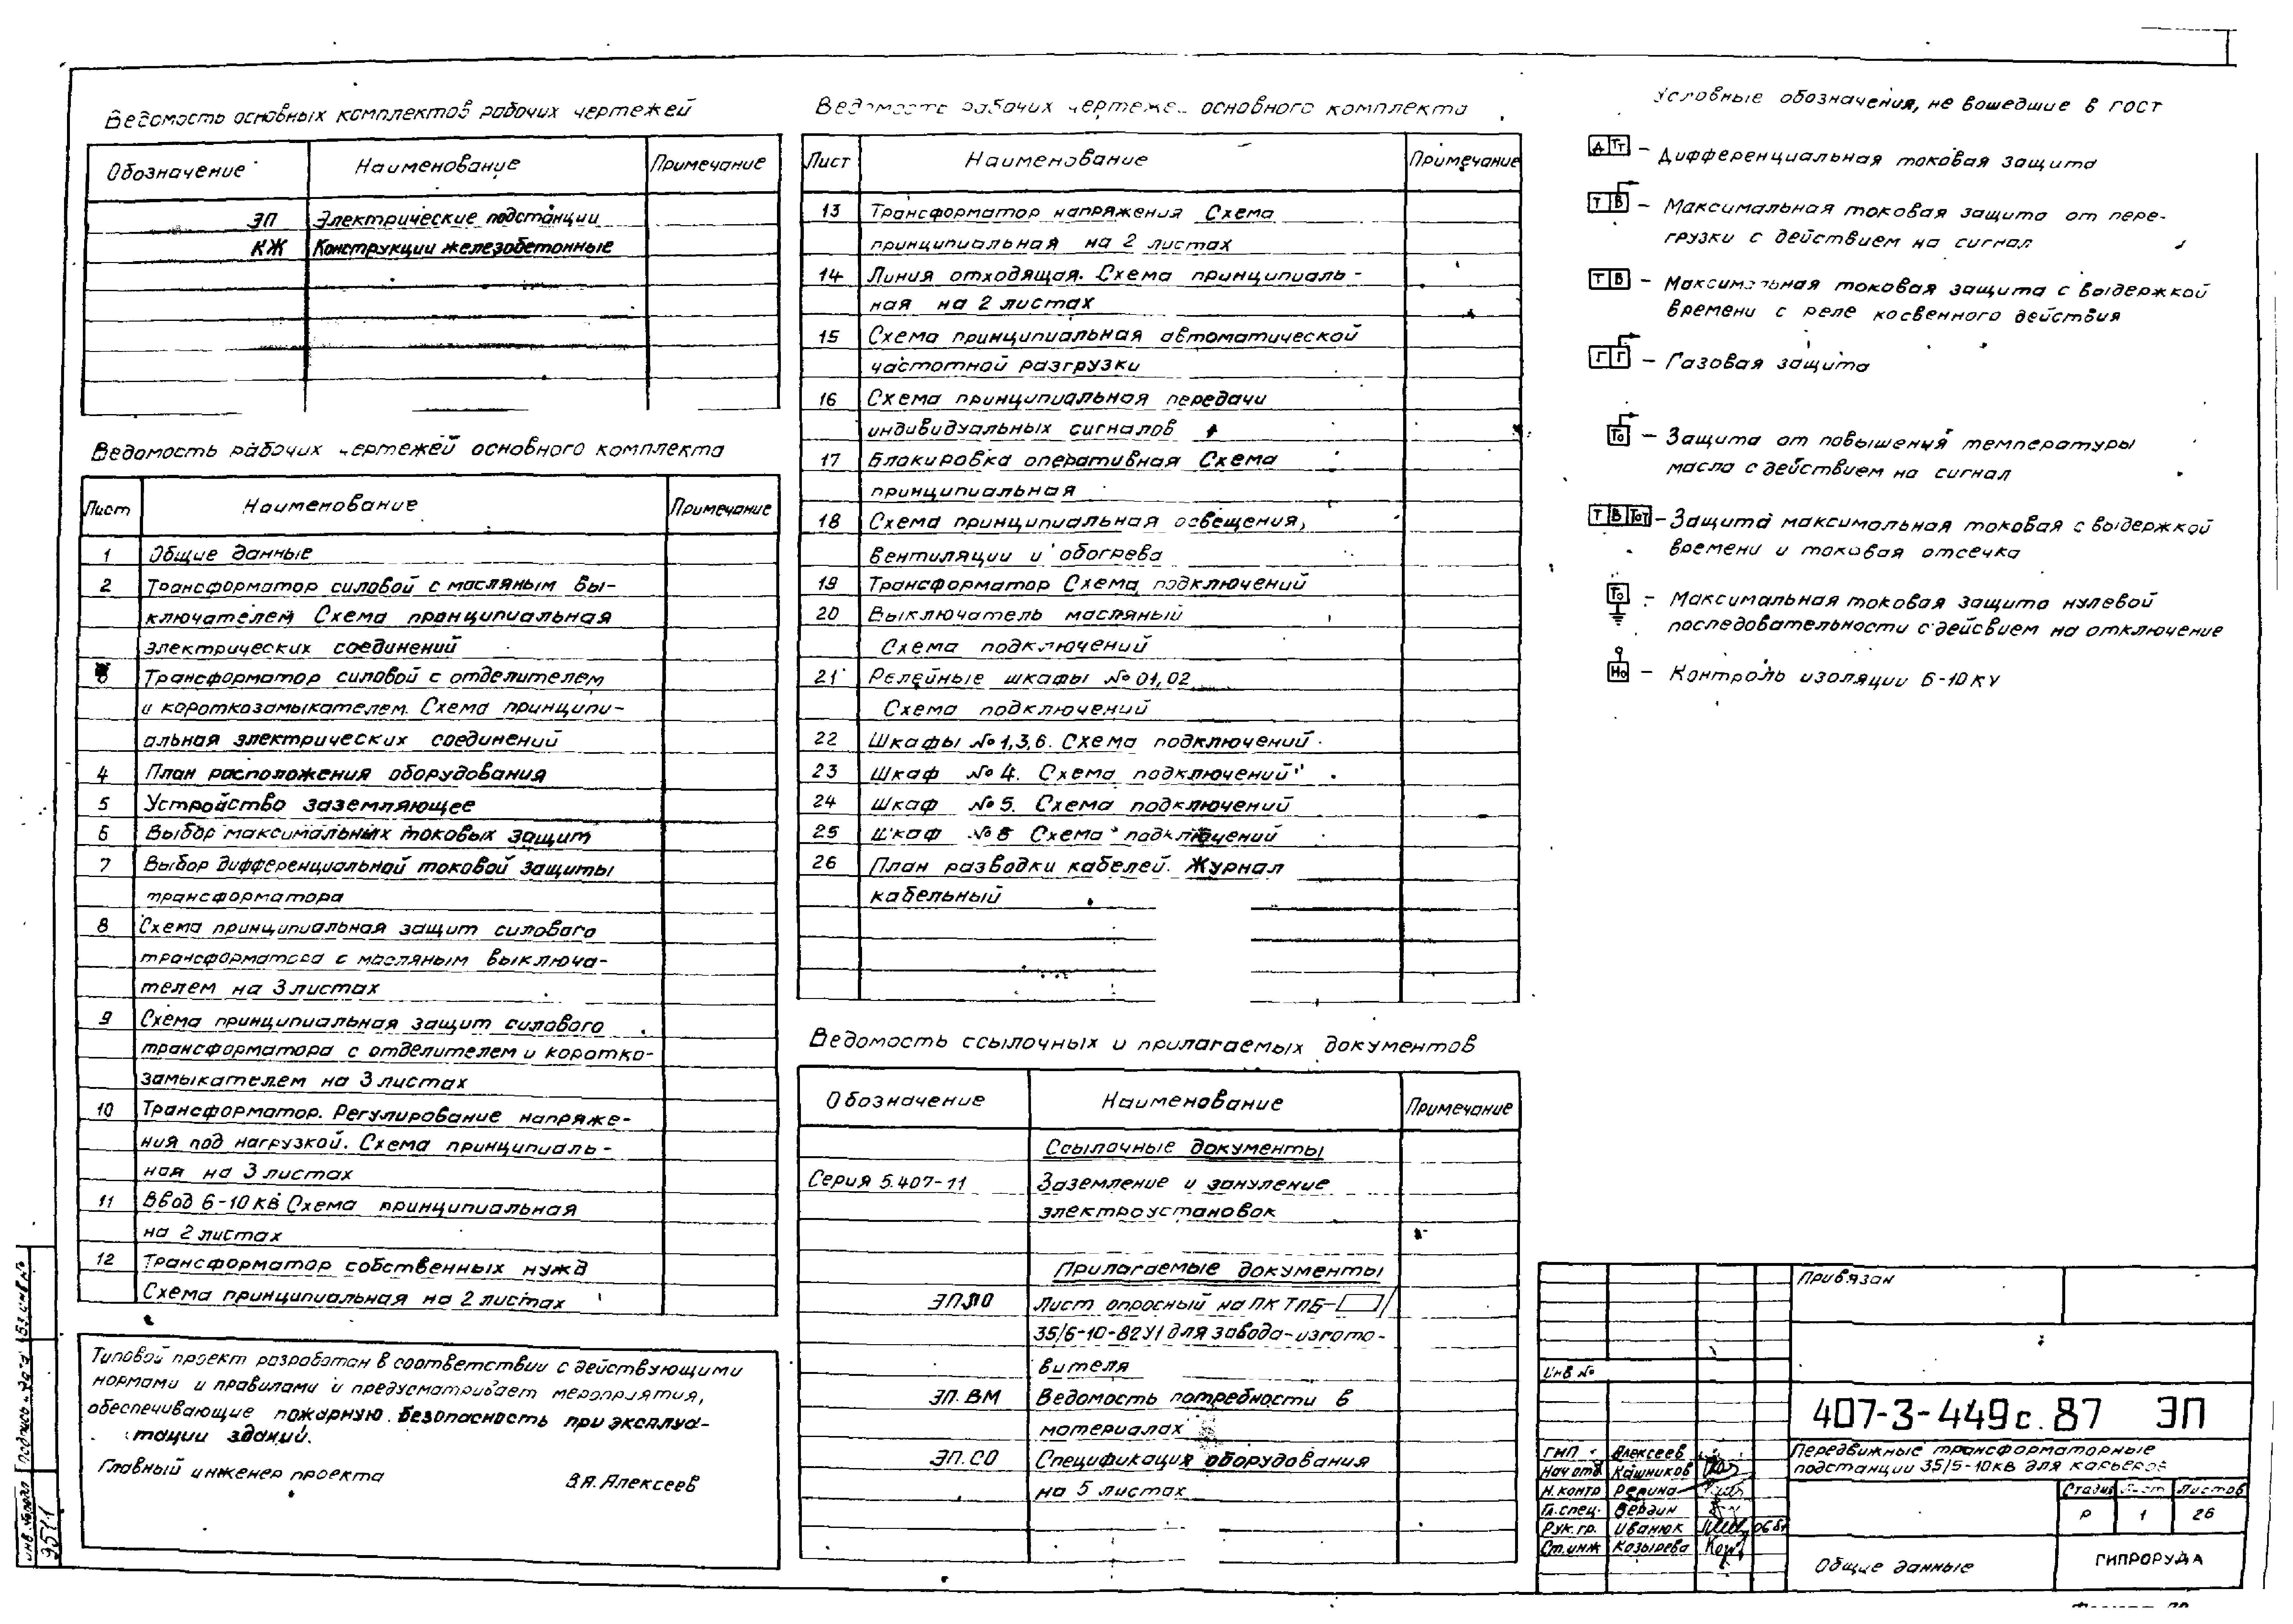 Ведомость основных комплектов рабочих чертежей
Обозначение Наименование Примечание
ЭП Электрические подстанции
КЖ Конструкции железобетонные
Ведомость рабочих чертежей основного комплекта
Лист Наименование Примечание
1 Общие данные
2 Трансформатор силовой с масляным вы-
ключателем Схема принципиальная
электрических соединений
3 Трансформатор силовой с отделителем
и короткозамыкателем. Схема принципи-
альная электрических соединений
4 План расположения оборудования
5 Устройство заземляющее
6 Выбор максимальных токовых защит
7 Выбор дифференциальной токовой защиты
трансформатора
8 Схема принципиальная защит силового
трансформатора с масляным выключа-
телем на 3 листах
9 Схема принципиальная защит силового
трансформатора с отделителем и коротко-
замыкателем на 3 листах
10 Трансформатор. Регулирование напряже-
ния под нагрузкой. Схема принципиаль-
ная на 3 листах
11 Ввод 6-10 кв Схема принципиальная
на 2 листах
12 Трансформатор собственных нужд
Схема принципиальная на 2 листах
Типовой проект разработан в соответствии с действующими
нормами и правилами и предусматривает мероприятия,
обеспечивающие пожарную безопасность при эксплуа-
тации зданий.
Главный инженер проекта В.Я. Алексеев
Ведомость рабочих чертежей основного комплекта
Лист Наименование Примечание
13 Трансформатор напряжения Схема
принципиальная на 2 листах
14 Линия отходящая. Схема принципиаль-
ная на 2 листах
15 Схема принципиальная автоматической
частотной разгрузки
16 Схема принципиальная передачи
индивидуальных сигналов
17 Блокировка оперативная Схема
принципиальная
18 Схема принципиальная освещения,
вентиляции и обогрева
19 Трансформатор Схема подключений
20 Выключатель масляный
Схема подключений
21 Релейные шкафы №01,02
Схема подключений
22 Шкафы №1,3,6. Схема подключений
23 Шкаф №4. Схема подключений
24 Шкаф №5. Схема подключений
25 Шкаф №8 Схема подключений
26 План разводки кабелей. Журнал
кабельный
Ведомость ссылочных и прилагаемых документов
Обозначение Наименование Примечание
Ссылочные документы
Серия 5.407-11 Заземление и зануление
электроустановок
Прилагаемые документы
ЭП.ЛО Лист опросный на ПКТПБ- /
35/6-10-82У1 для завода-изгото-
вителя
ЭП.ВМ Ведомость потребности в
материалах
ЭП.СО Спецификация оборудования
на 5 листах
Условные обозначения, не вошедшие в гост
Д ТТ – Дифференциальная токовая защита
Т В – Максимальная токовая защита от пере-
грузки с действием на сигнал
Т В – Максимальная токовая защита с выдержкой
времени с реле косвенного действия
Г Г – Газовая защита
То – Защита от повышения температуры
масла с действием на сигнал
Т В ТоТ – Защита максимальная токовая с выдержкой
времени и токовая отсечка
То – Максимальная токовая защита нулевой
последовательности с дейсвием на отключение
Но – Контроль изоляции 6-10 КУ
Привязан
Инв №
407-3-449с.87 ЭП
ГИП Алексеев
Нач отд Кашников
Н.контр Репина
Гл.спец. Вердин
Рук.гр. Иванюк
Ст.инж Козырева
Передвижные трансформаторные
подстанции 35/6-10кв для карьеров
Стадия Лист Листов
Р 1 26
Общие данные
ГИПРОРУДА
Инв.№подл Подпись и дата Вз.инв№
9511